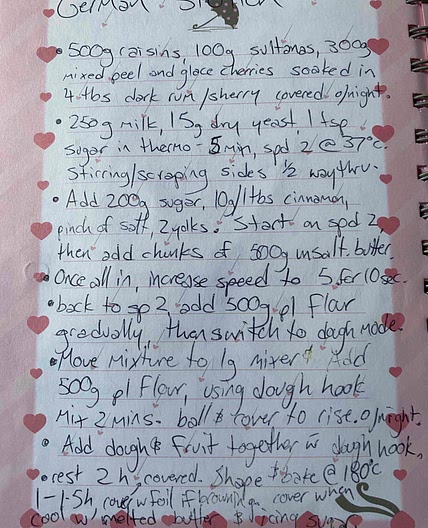 German Stollen
• 500g raisins, 100g sultanas, 300g
mixed peel and glace cherries soaked in
4 tbs dark rum/sherry covered o/night.
• 250g milk, 15g dry yeast, 1 tsp
sugar in thermo - 5 min, spd 2 @ 37°c.
Stirring/scraping sides ½ way thru.
• Add 200g sugar, 10g/1tbs cinnamon,
pinch of salt, 2 yolks. Start on spd 2,
then add chunks of 500g unsalt. butter.
• Once all in, increase speed to 5 for 10 sec.
• back to sp 2, add 500g pl flour
gradually, then switch to dough mode.
• Move mixture to lg mixer & Add
500g pl flour, using dough hook
Mix 2 mins. ball & cover to rise. o/night.
• Add dough & fruit together w dough hook,
• rest 2 h covered. Shape & bake @ 180°c
1-1.5h cover w foil if browning cover when
cool w melted butter & icing sugar